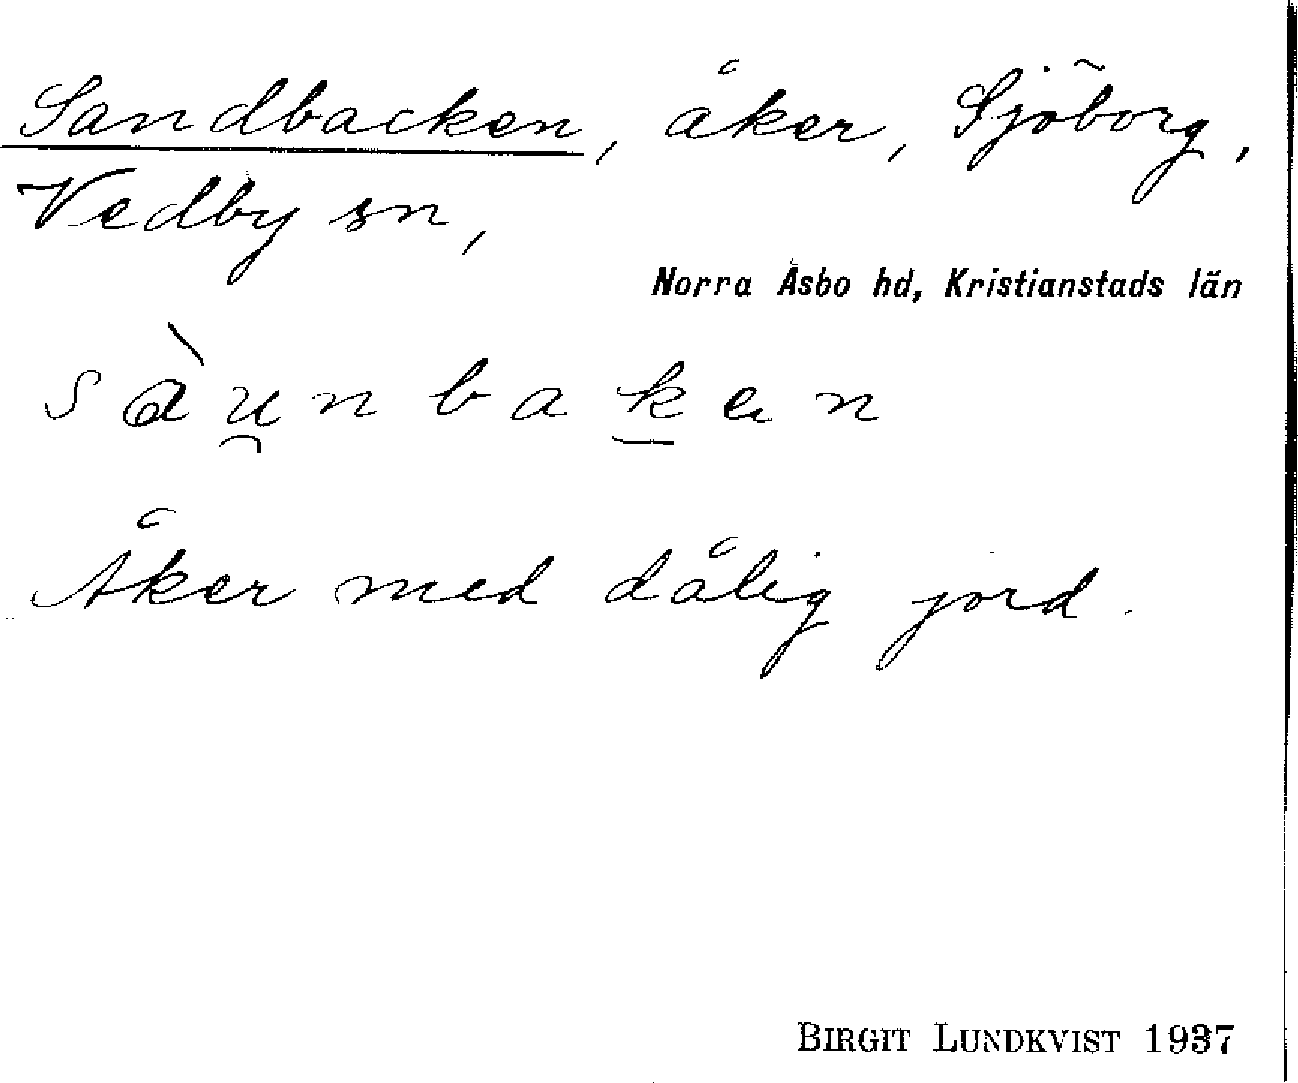 Sandbacken, åker, Sjöborg,
Vedby sn,
Norra Åsbo hd, Kristianstads län
sàu̯nbak̲ən
Åker med dålig jord.
BIRGIT LUNDKVIST 1937